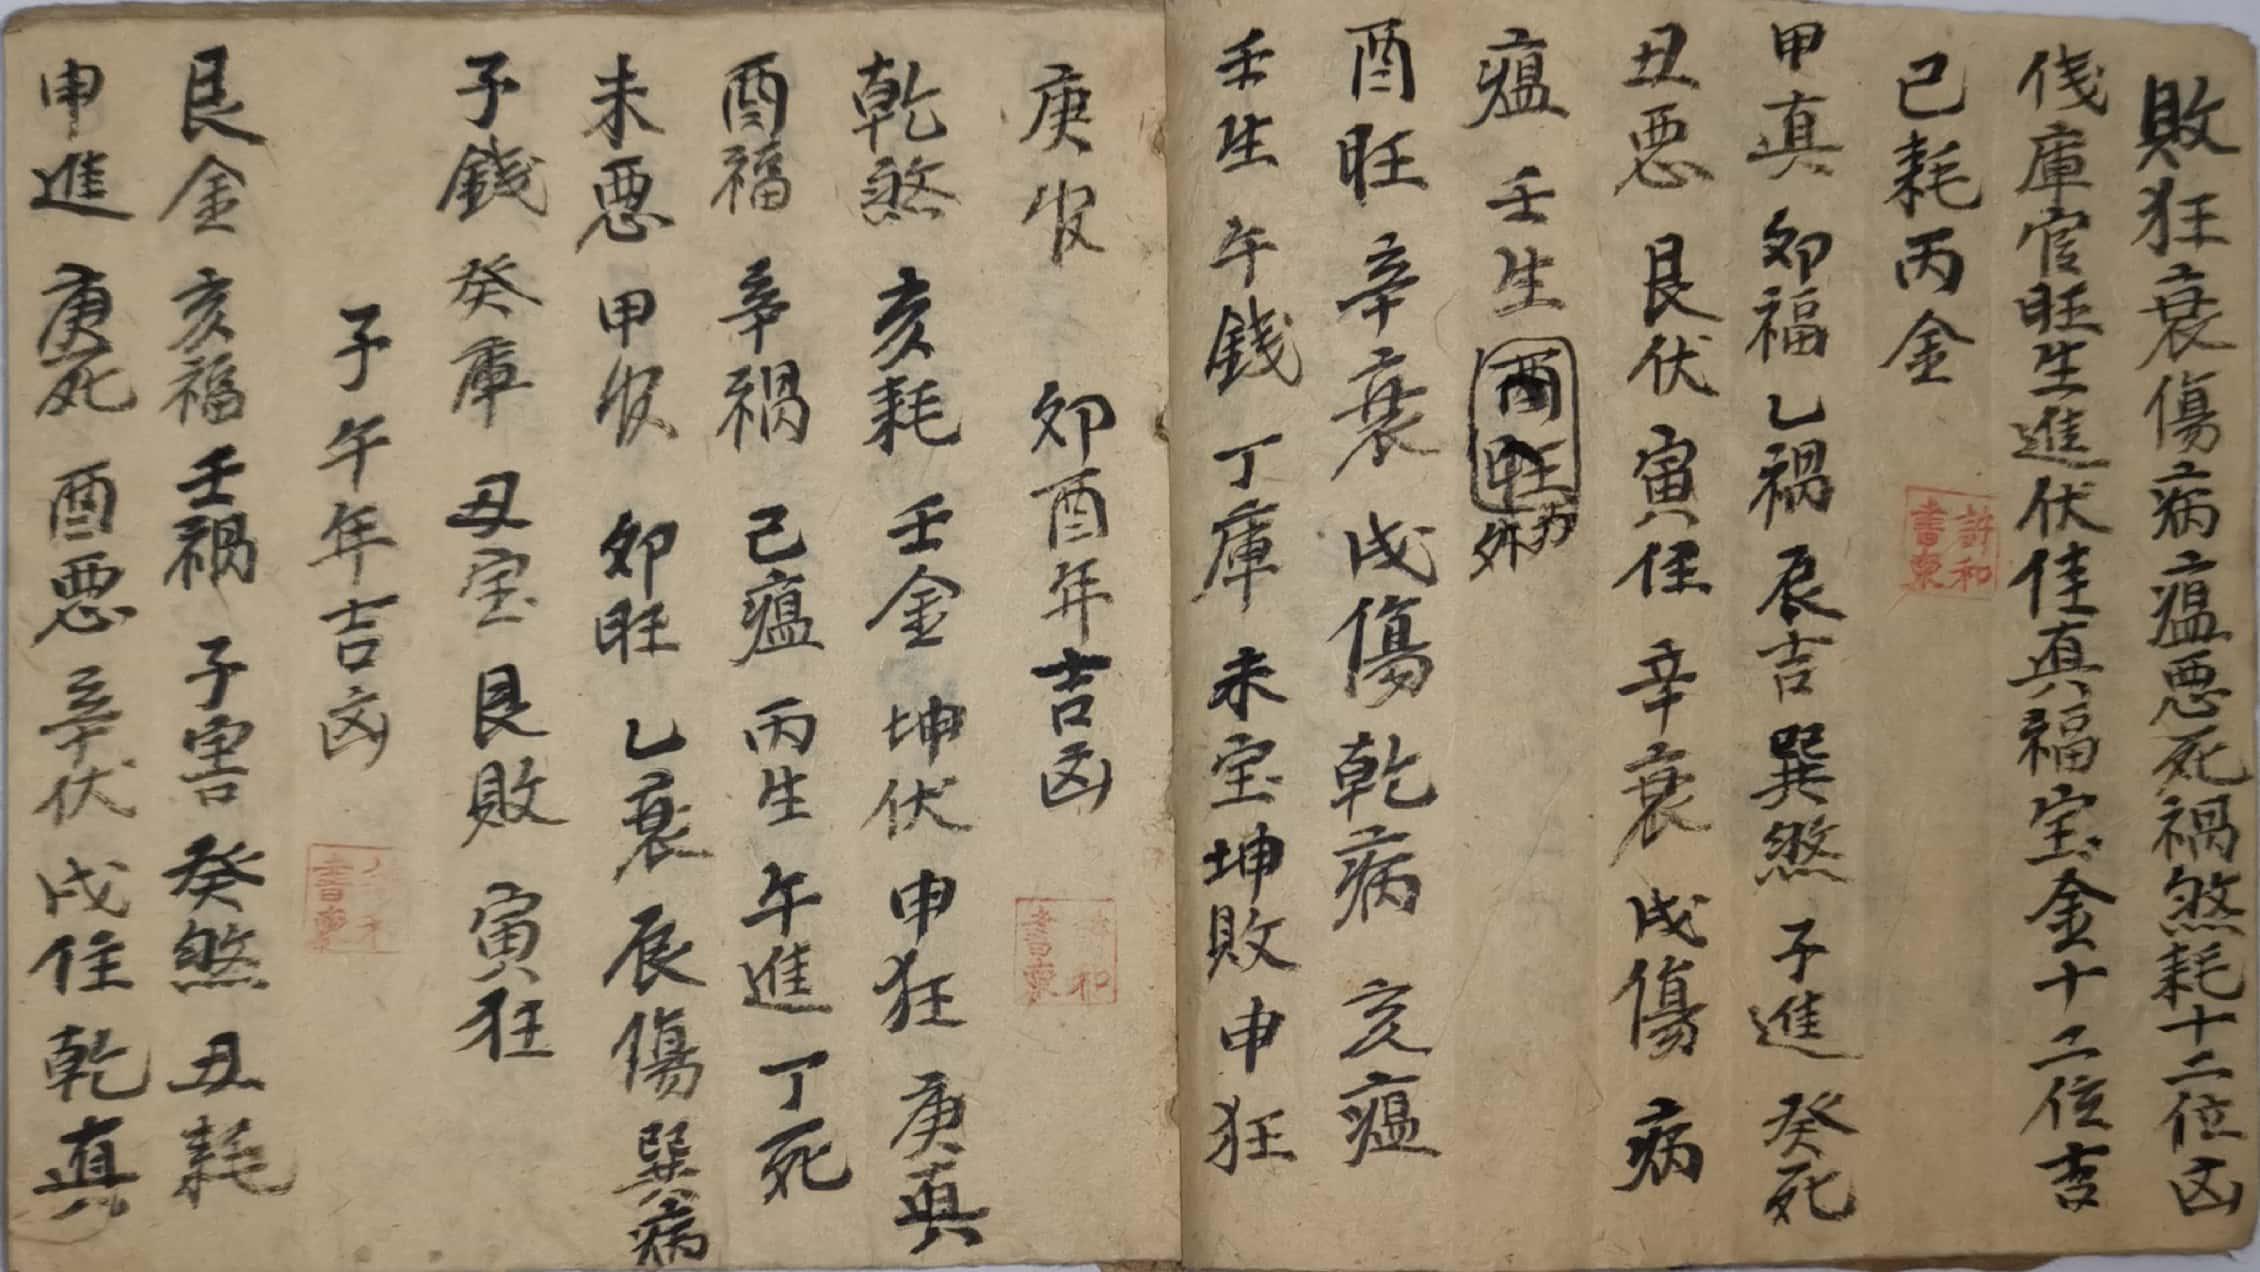 敗狂衰傷病瘟悪死禍煞耗十二位凶
伐庫官旺生進伏佳真福宝金十二位吉
已耗丙金
許和
書東
甲真 夘福 乙禍 辰吉 巽煞 子進 癸死
丑悪 艮伏 寅住 辛衰 戌傷 病
瘟 壬生 酉旺
外力
酉旺 辛衰 戌傷 乾病 亥瘟
壬生 午錢 丁庫 未宝 坤敗 申狂
庚官 夘酉年吉凶
和
書東
乾煞 亥耗 壬金 坤伏 申狂 庚真
酉福 辛禍 己瘟 丙生 午進 丁死
未悪 甲官 夘旺 乙衰 辰傷 巽病
子錢 癸庫 丑宝 艮敗 寅狂
子午年吉凶
書東
艮金 亥福 壬禍 子害 癸煞 丑耗
申進 庚死 酉悪 辛伏 戌住 乾真